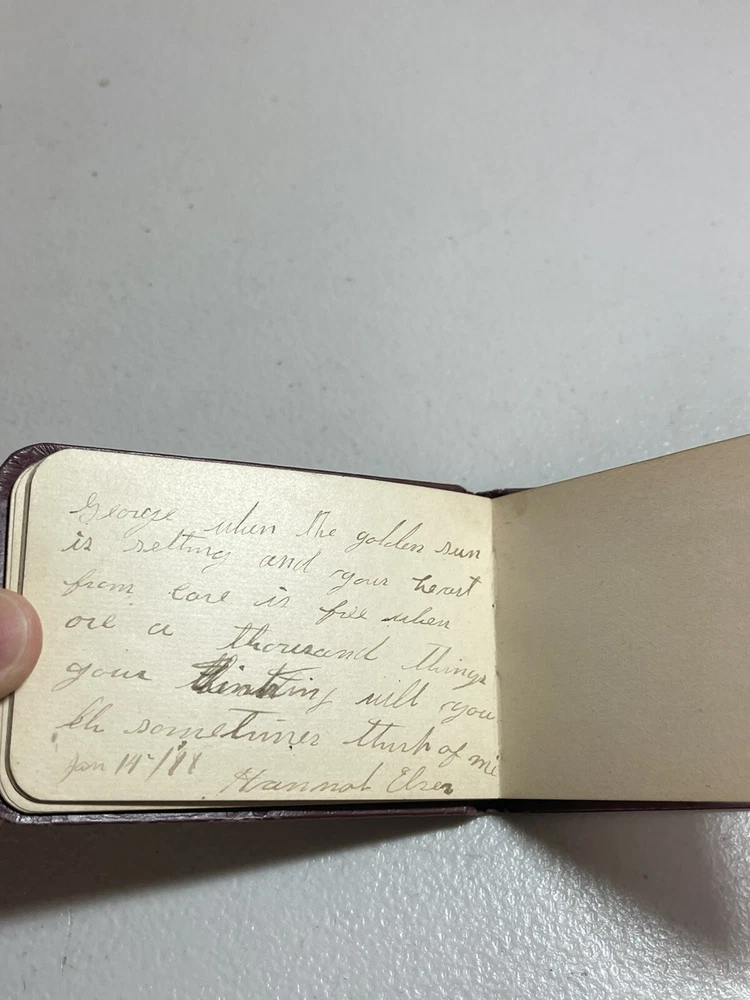 George when the golden sun
is setting and your heart
from care is free when
ore a thousand things
your thinking will you
sometimes think of me
Jan 14-/11
Hannah Elser